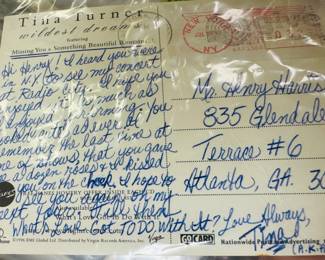 Tina Turner
wildest dreams
featuring
Missing You & Something Beautiful Remains
Hi Henry! I heard you were
in N.Y. to see my concert
at Radio City. I hope you
enjoyed it as much as
I enjoyed performing. You
look as ever! Do you
remember the last time at
one of shows, that you gave
me a dozen roses & I kissed
you on the cheek. I hope to
see you again on my
next tour
What's Love Got To Do With It? Love Always,
Tina
(A.K.A.
NEW YORK
NY
Mr. Henry Harris
835 Glendale
Terrace #6
Atlanta, GA. 30
What's Love Got To Do With It
©1996 EMI Global Ltd. Distributed by Virgin Records America, Inc.
Virgin
GO CARD
Nationwide Postcard Advertising